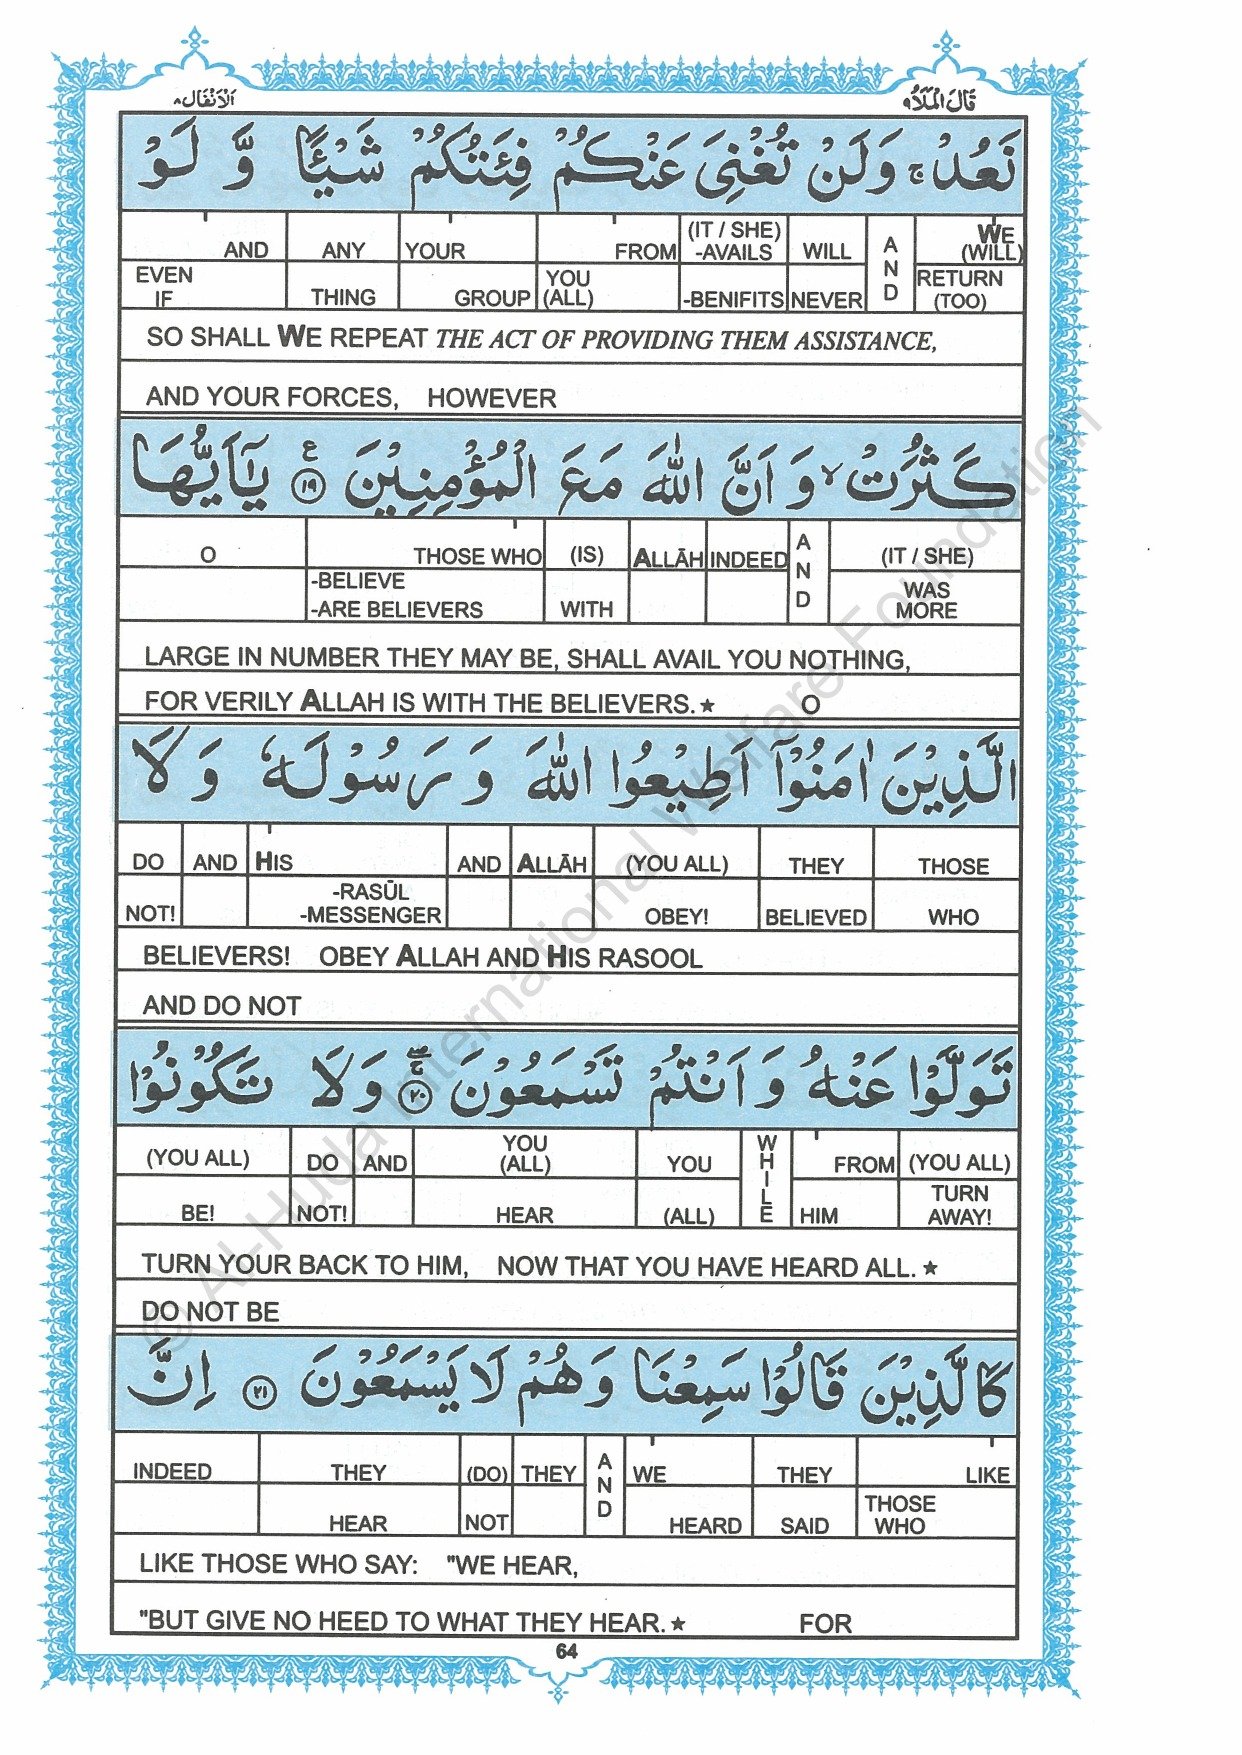 اَلْاَنْفَال ٨ قَالَ الْمَلَاُ ٩
نَعُدْ ۚ وَلَنْ تُغْنِىَ عَنْكُمْ فِئَتُكُمْ شَيْئًا وَّ لَوْ
AND ANY YOUR FROM (IT / SHE) -AVAILS WILL AND WE (WILL)
EVEN IF THING GROUP YOU (ALL) -BENIFITS NEVER RETURN (TOO)
SO SHALL WE REPEAT THE ACT OF PROVIDING THEM ASSISTANCE,
AND YOUR FORCES, HOWEVER
كَثُرَتْ ۙ وَ اَنَّ اللّٰهَ مَعَ الْمُؤْمِنِيْنَ ۧ ١٩ يٰٓاَيُّهَا
O THOSE WHO (IS) ALLĀH INDEED AND (IT / SHE)
-BELIEVE -ARE BELIEVERS WITH WAS MORE
LARGE IN NUMBER THEY MAY BE, SHALL AVAIL YOU NOTHING,
FOR VERILY ALLAH IS WITH THE BELIEVERS.★ O
الَّذِيْنَ اٰمَنُوْٓا اَطِيْعُوا اللّٰهَ وَ رَسُوْلَهٗ وَ لَا
DO AND HIS AND ALLĀH (YOU ALL) THEY THOSE
NOT! -RASŪL -MESSENGER OBEY! BELIEVED WHO
BELIEVERS! OBEY ALLAH AND HIS RASOOL
AND DO NOT
تَوَلَّوْا عَنْهُ وَ اَنْتُمْ تَسْمَعُوْنَ ۚۖ ٢٠ وَ لَا تَكُوْنُوْا
(YOU ALL) DO AND YOU (ALL) YOU WHILE FROM (YOU ALL)
BE! NOT! HEAR (ALL) HIM TURN AWAY!
TURN YOUR BACK TO HIM, NOW THAT YOU HAVE HEARD ALL.★
DO NOT BE
كَالَّذِيْنَ قَالُوْا سَمِعْنَا وَ هُمْ لَا يَسْمَعُوْنَ ٢١ اِنَّ
INDEED THEY (DO) THEY AND WE THEY LIKE
HEAR NOT HEARD SAID THOSE WHO
LIKE THOSE WHO SAY: "WE HEAR,
"BUT GIVE NO HEED TO WHAT THEY HEAR.★ FOR
64
© Al-Huda International Welfare Foundation